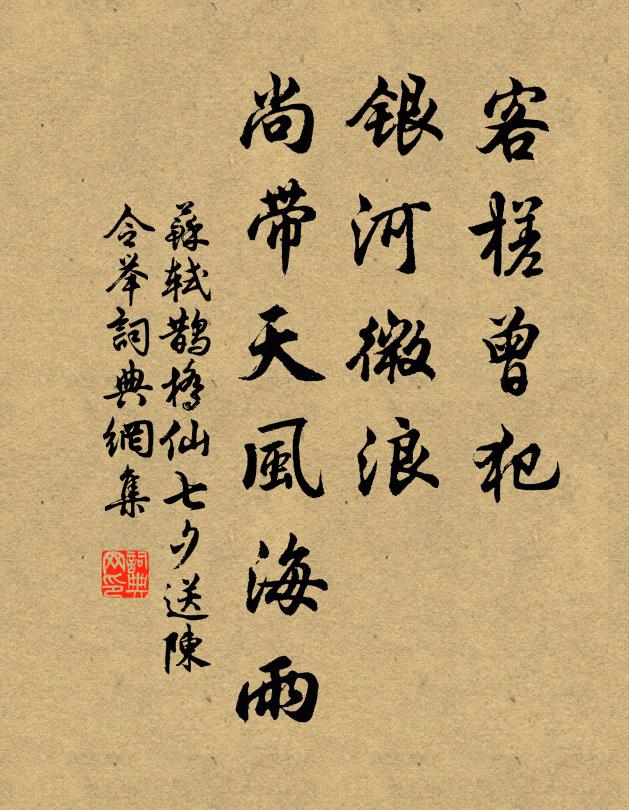 客槎曾犯
銀河微浪
尚带天風海雨
蘇軾鵲橋仙七夕送陳
令举詞典網集
詞典
网印